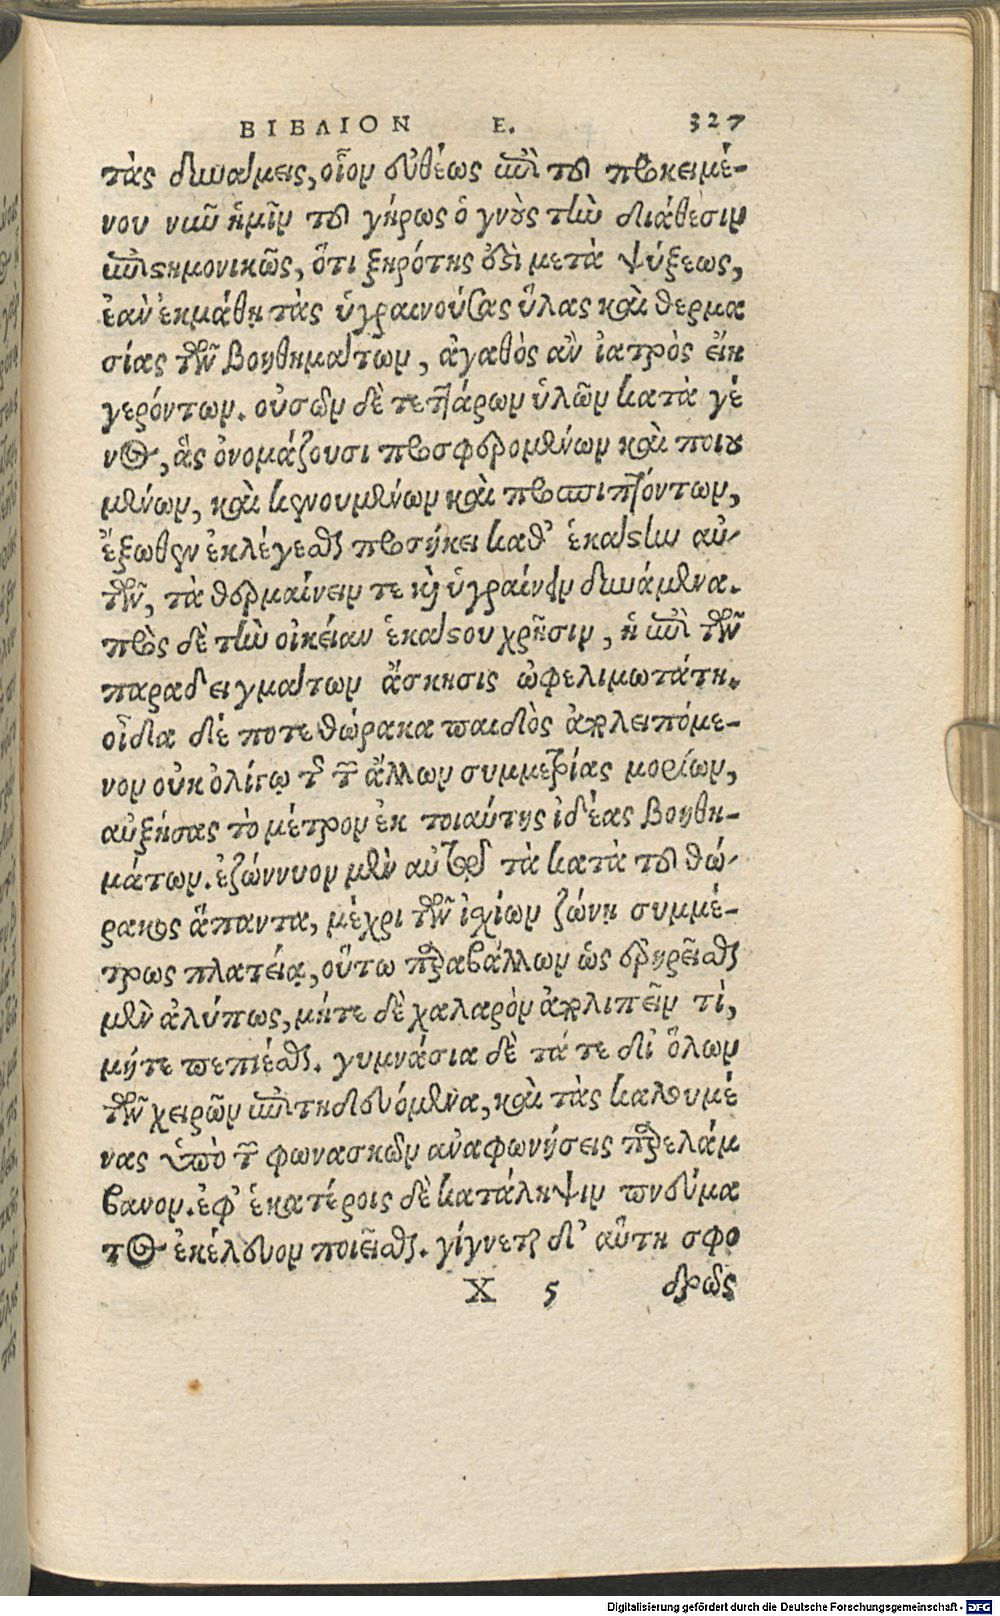 ΒΙΒΛΙΟΝ Ε. 327
τὰς δυνάμεις, οἷον εὐθέως ἐπὶ τοῦ προκειμέ-
νου νῦν ἡμῖν τοῦ γήρως ὁ γνοὺς τὴν διάθεσιν
ἐπιστημονικῶς, ὅτι ξηρότης ἐστὶ μετὰ ψύξεως,
ἐὰν ἐκμάθῃ τὰς ὑγραινούσας ὕλας καὶ θερμα
σίας τῶν βοηθημάτων, ἀγαθὸς ἂν ἰατρὸς εἴη
γερόντων. οὐσῶν δὲ τεττάρων ὑλῶν κατὰ γέ
νος, ἃς ὀνομάζουσι προσφερομένων καὶ ποιου
μένων, καὶ κενουμένων καὶ προσπιπτόντων,
ἔξωθεν ἐκλέγεσθαι προσήκει καθ’ ἑκάστην αὐ-
τῶν, τὰ θερμαίνειν τε καὶ ὑγραίνειν δυνάμενα.
πρὸς δὲ τὴν οἰκείαν ἑκάστου χρῆσιν, ἡ ἐπὶ τῶν
παραδειγμάτων ἄσκησις ὠφελιμωτάτη.
οἶδα δέ ποτε θώρακα παιδὸς ἀπολειπόμε-
νον οὐκ ὀλίγῳ τῆς τῶν ἄλλων συμμετρίας μορίων,
αὐξήσας τὸ μέτρον ἐκ τοιαύτης ἰδέας βοηθη-
μάτων. ἐζώννυον μὲν αὐτοῦ τὰ κατὰ τοῦ θώ-
ρακος ἅπαντα, μέχρι τῶν ἰσχίων ζώνῃ συμμέ-
τρως πλατείᾳ, οὕτω περιβάλλων ὡς ἐρηρεῖσθαι
μὲν ἀλύπως, μήτε δὲ χαλαρὸν ἀπολιπεῖν τὶ,
μήτε πεπιέσθαι. γυμνάσια δὲ τά τε δι’ ὅλων
τῶν χειρῶν ἐπιτηδευόμενα, καὶ τὰς καλουμέ
νας ὑπὸ τῶν φωνασκῶν ἀναφωνήσεις παρελάμ
βανον. ἐφ’ ἑκατέροις δὲ κατάληψιν πνεύμα
τος ἐκέλευον ποιεῖσθαι. γίγνεται δ’ αὕτη σφο
X 5 δρῶς